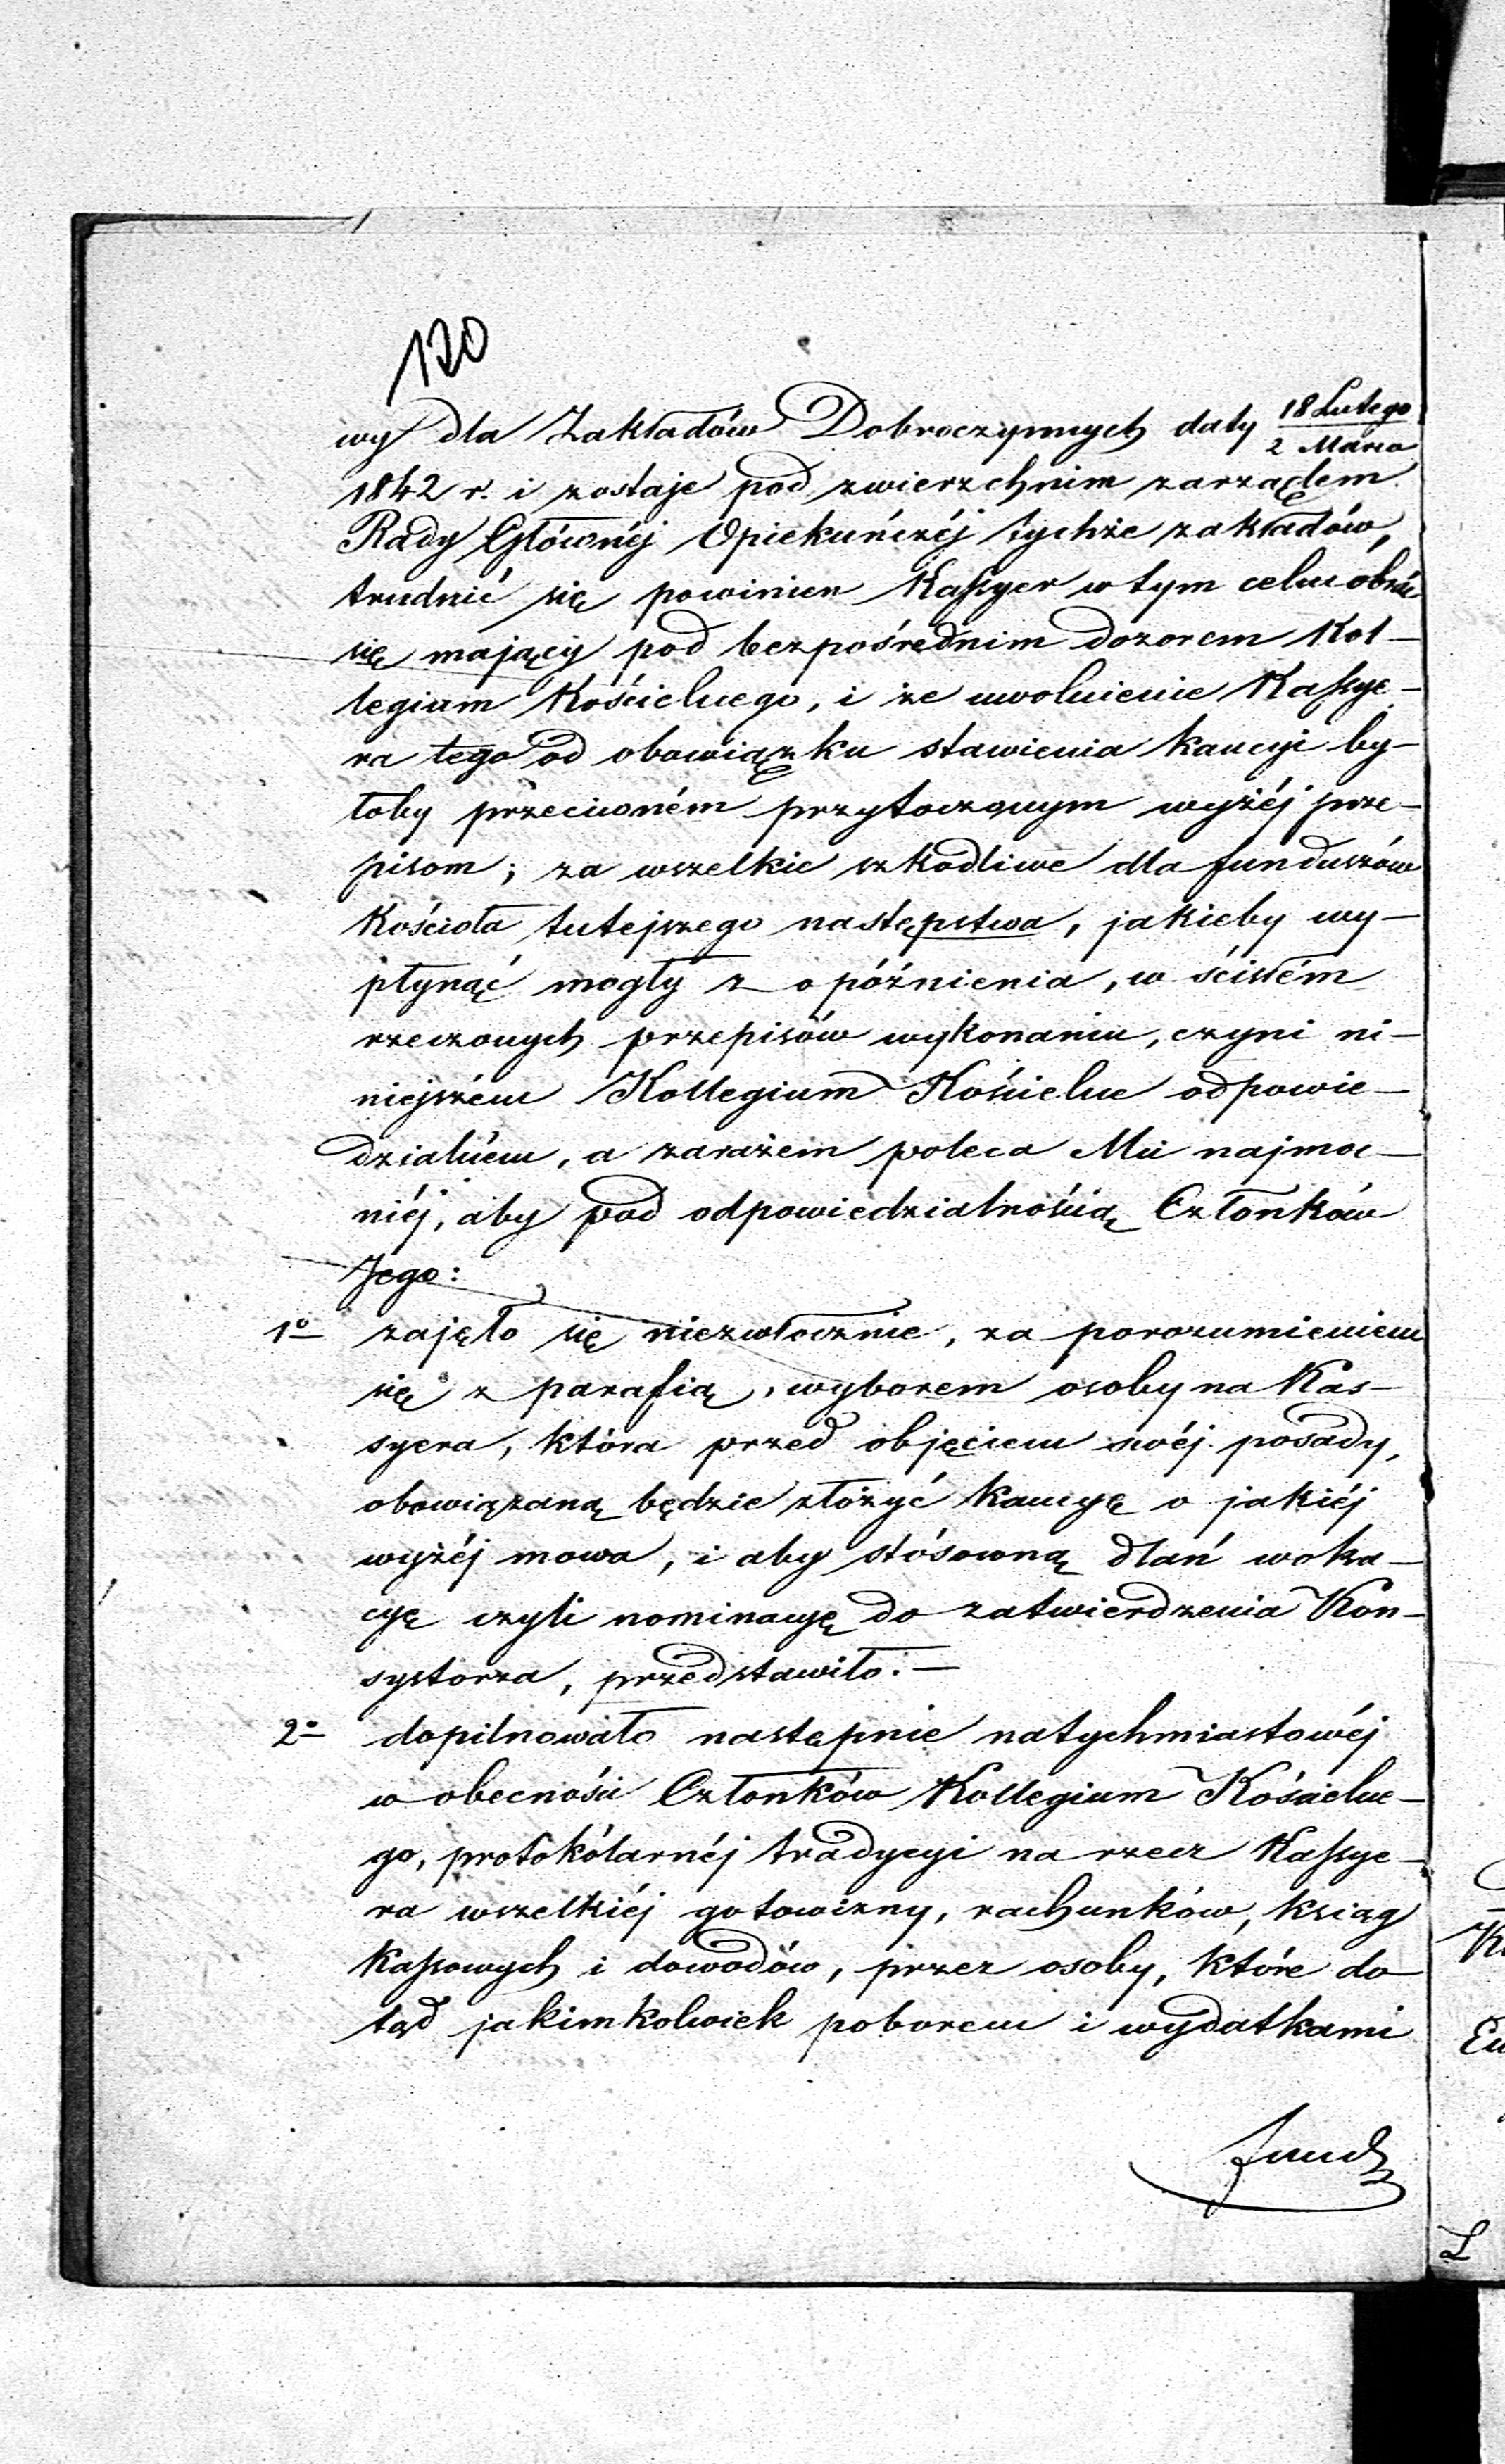 120
wy dla Zakładów Dobroczynnych daty 18 Lutego / 2 Marca
1842 r. i zostaje pod zwierzchnim zarządem
Rady Głównéj Opiekuńczéj tychże zakładów,
trudnić się powinien Kassyer w tym celu obrać
się mający pod bezpośrednim dozorem Kol-
legium Kościelnego, i że uwolnienie Kassye-
ra tego od obowiązku stawienia kaucyi by-
łoby przeciwném przytoczonym wyżéj prze-
pisom; za wszelkie szkodliwe dla funduszów
Kościoła tutejszego następstwa, jakieby wy-
płynąć mogły z opóźnienia, w ścisłém
rzeczonych przepisów wykonaniu, czyni ni-
niejszém Kollegium Kościelne odpowie-
dzialném, a zarazem poleca Mu najmoc-
niéj, aby pod odpowiedzialnością Członków
Jego:
1o zajęło się niezwłocznie, za porozumieniem
się z parafią, wyborem osoby na Kas-
syera, która przed objęciem swéj posady,
obowiązaną będzie złożyć kaucyę o jakiéj
wyżéj mowa, i aby stósowną dlań woka-
cyę czyli nominacyę do zatwierdzenia Kon-
systorza, przedstawiło.—
2o dopilnowało następnie natychmiastowéj
w obecności Członków Kollegium Kościelne-
go, protokólarnéj tradycyi na rzecz Kassye-
ra wszelkiéj gotowizny, rachunków, ksiąg
Kassowych i dowodów, przez osoby, które do-
tąd jakimkolwiek poborem i wydatkami